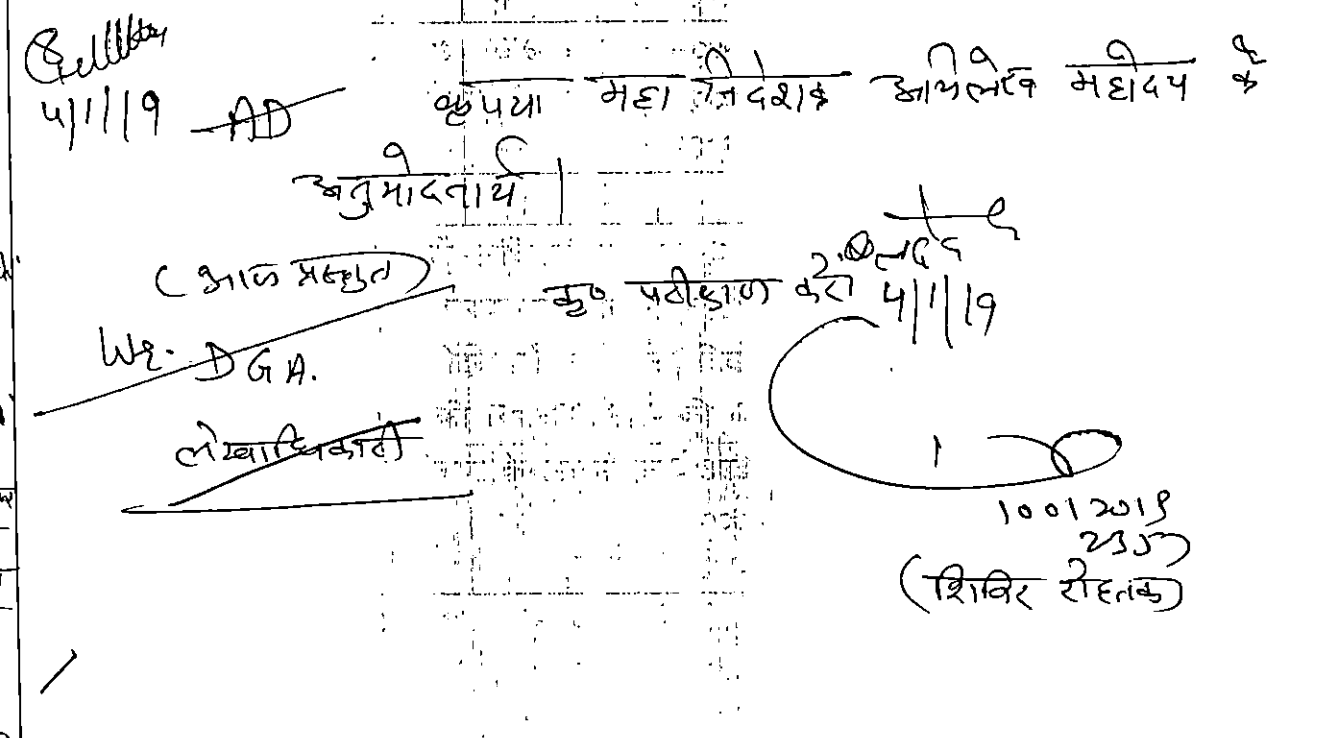 4/1/19 AD
कृपया महानिदेशक अभिलेख महोदय के
अनुमोदनार्थ।
(आज प्रस्तुत)
कृ० परीक्षण करें
4/1/19
DGA.
लेखाधिकारी
10012019
(शिविर रोहतक)